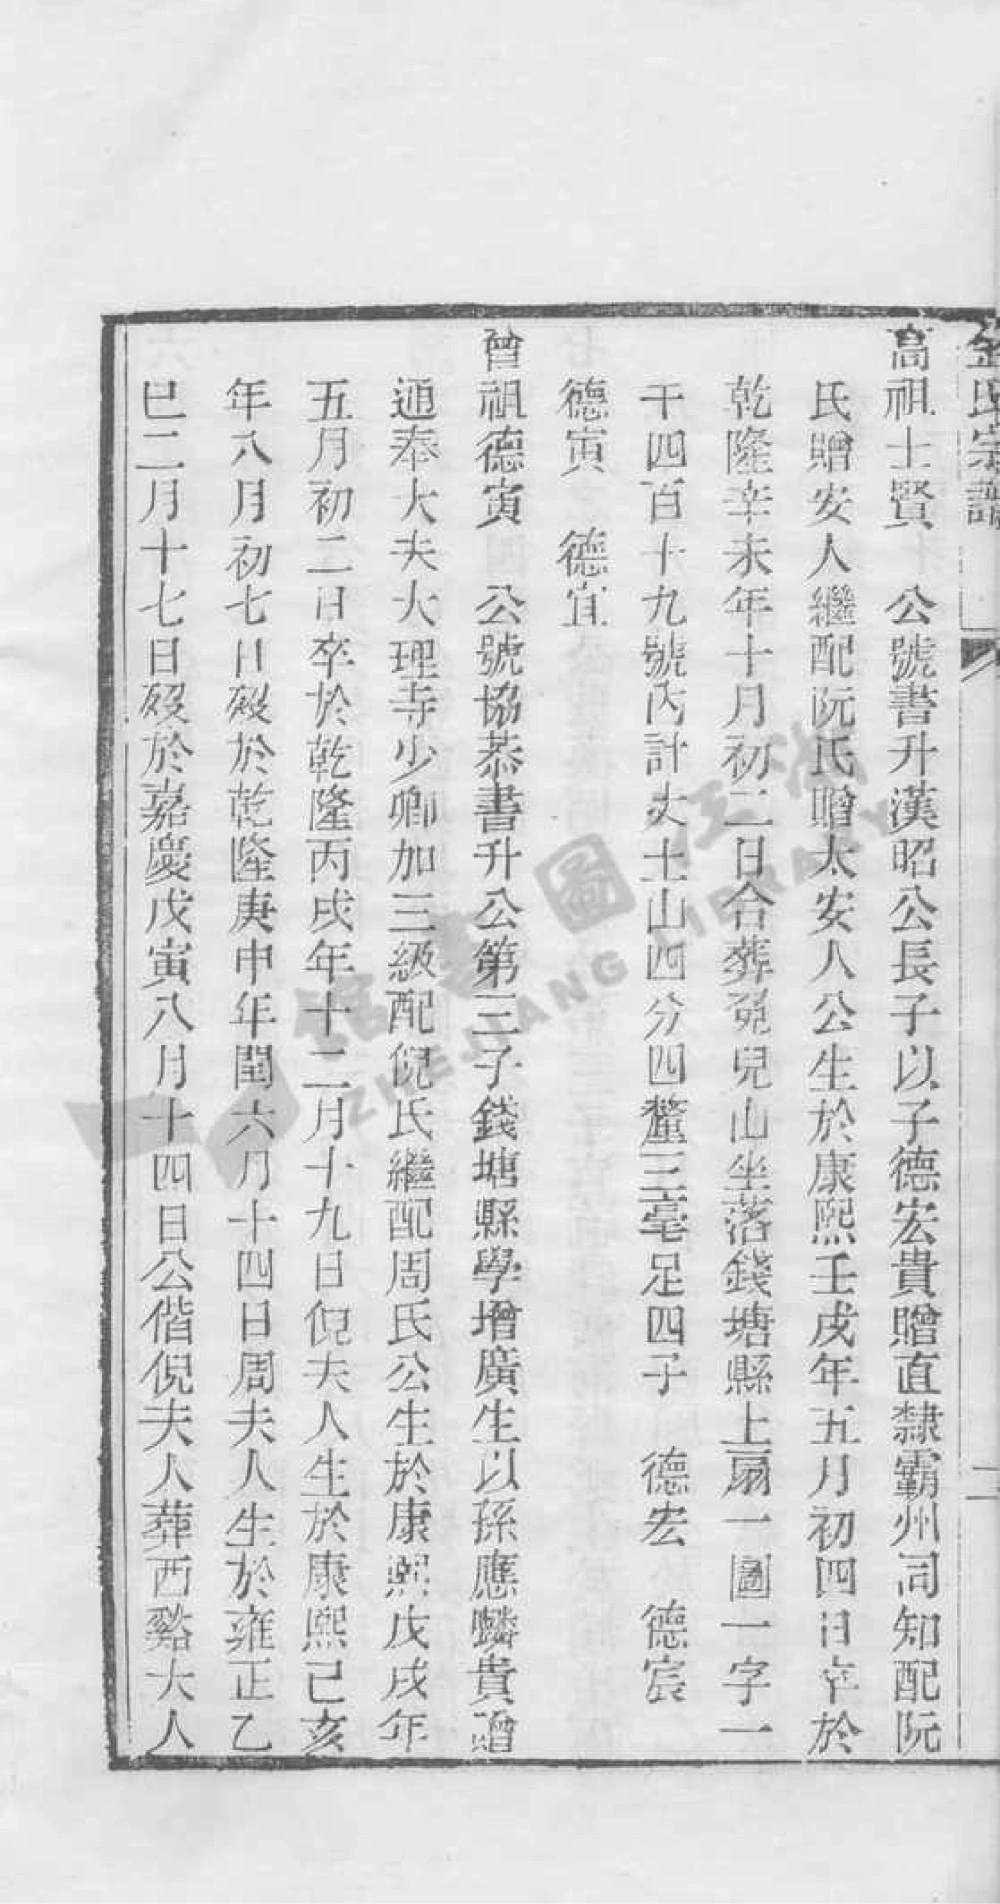 金氏宗譜
二
高祖士賢　公號書升漢昭公長子以子德宏貴贈直隸霸州同知配阮
氏贈安人繼配阮氏贈太安人公生於康熙壬戌年五月初四日卒於
乾隆辛未年十月初二日合葬兔兒山坐落錢塘縣上扇一圖一字一
千四百十九號內計丈土山四分四釐三毫足四子　德宏　德宸
德寅　德宜
曾祖德寅　公號協恭書升公第三子錢塘縣學增廣生以孫應麟貴贈
通奉大夫大理寺少卿加三級配倪氏繼配周氏公生於康熙戊戌年
五月初二日卒於乾隆丙戌年十二月十九日倪夫人生於康熙己亥
年八月初七日歿於乾隆庚申年閏六月十四日周夫人生於雍正乙
巳二月十七日歿於嘉慶戊寅八月十四日公偕倪夫人葬西谿大人
浙江圖書館
ZHEJIANG LIBRARY